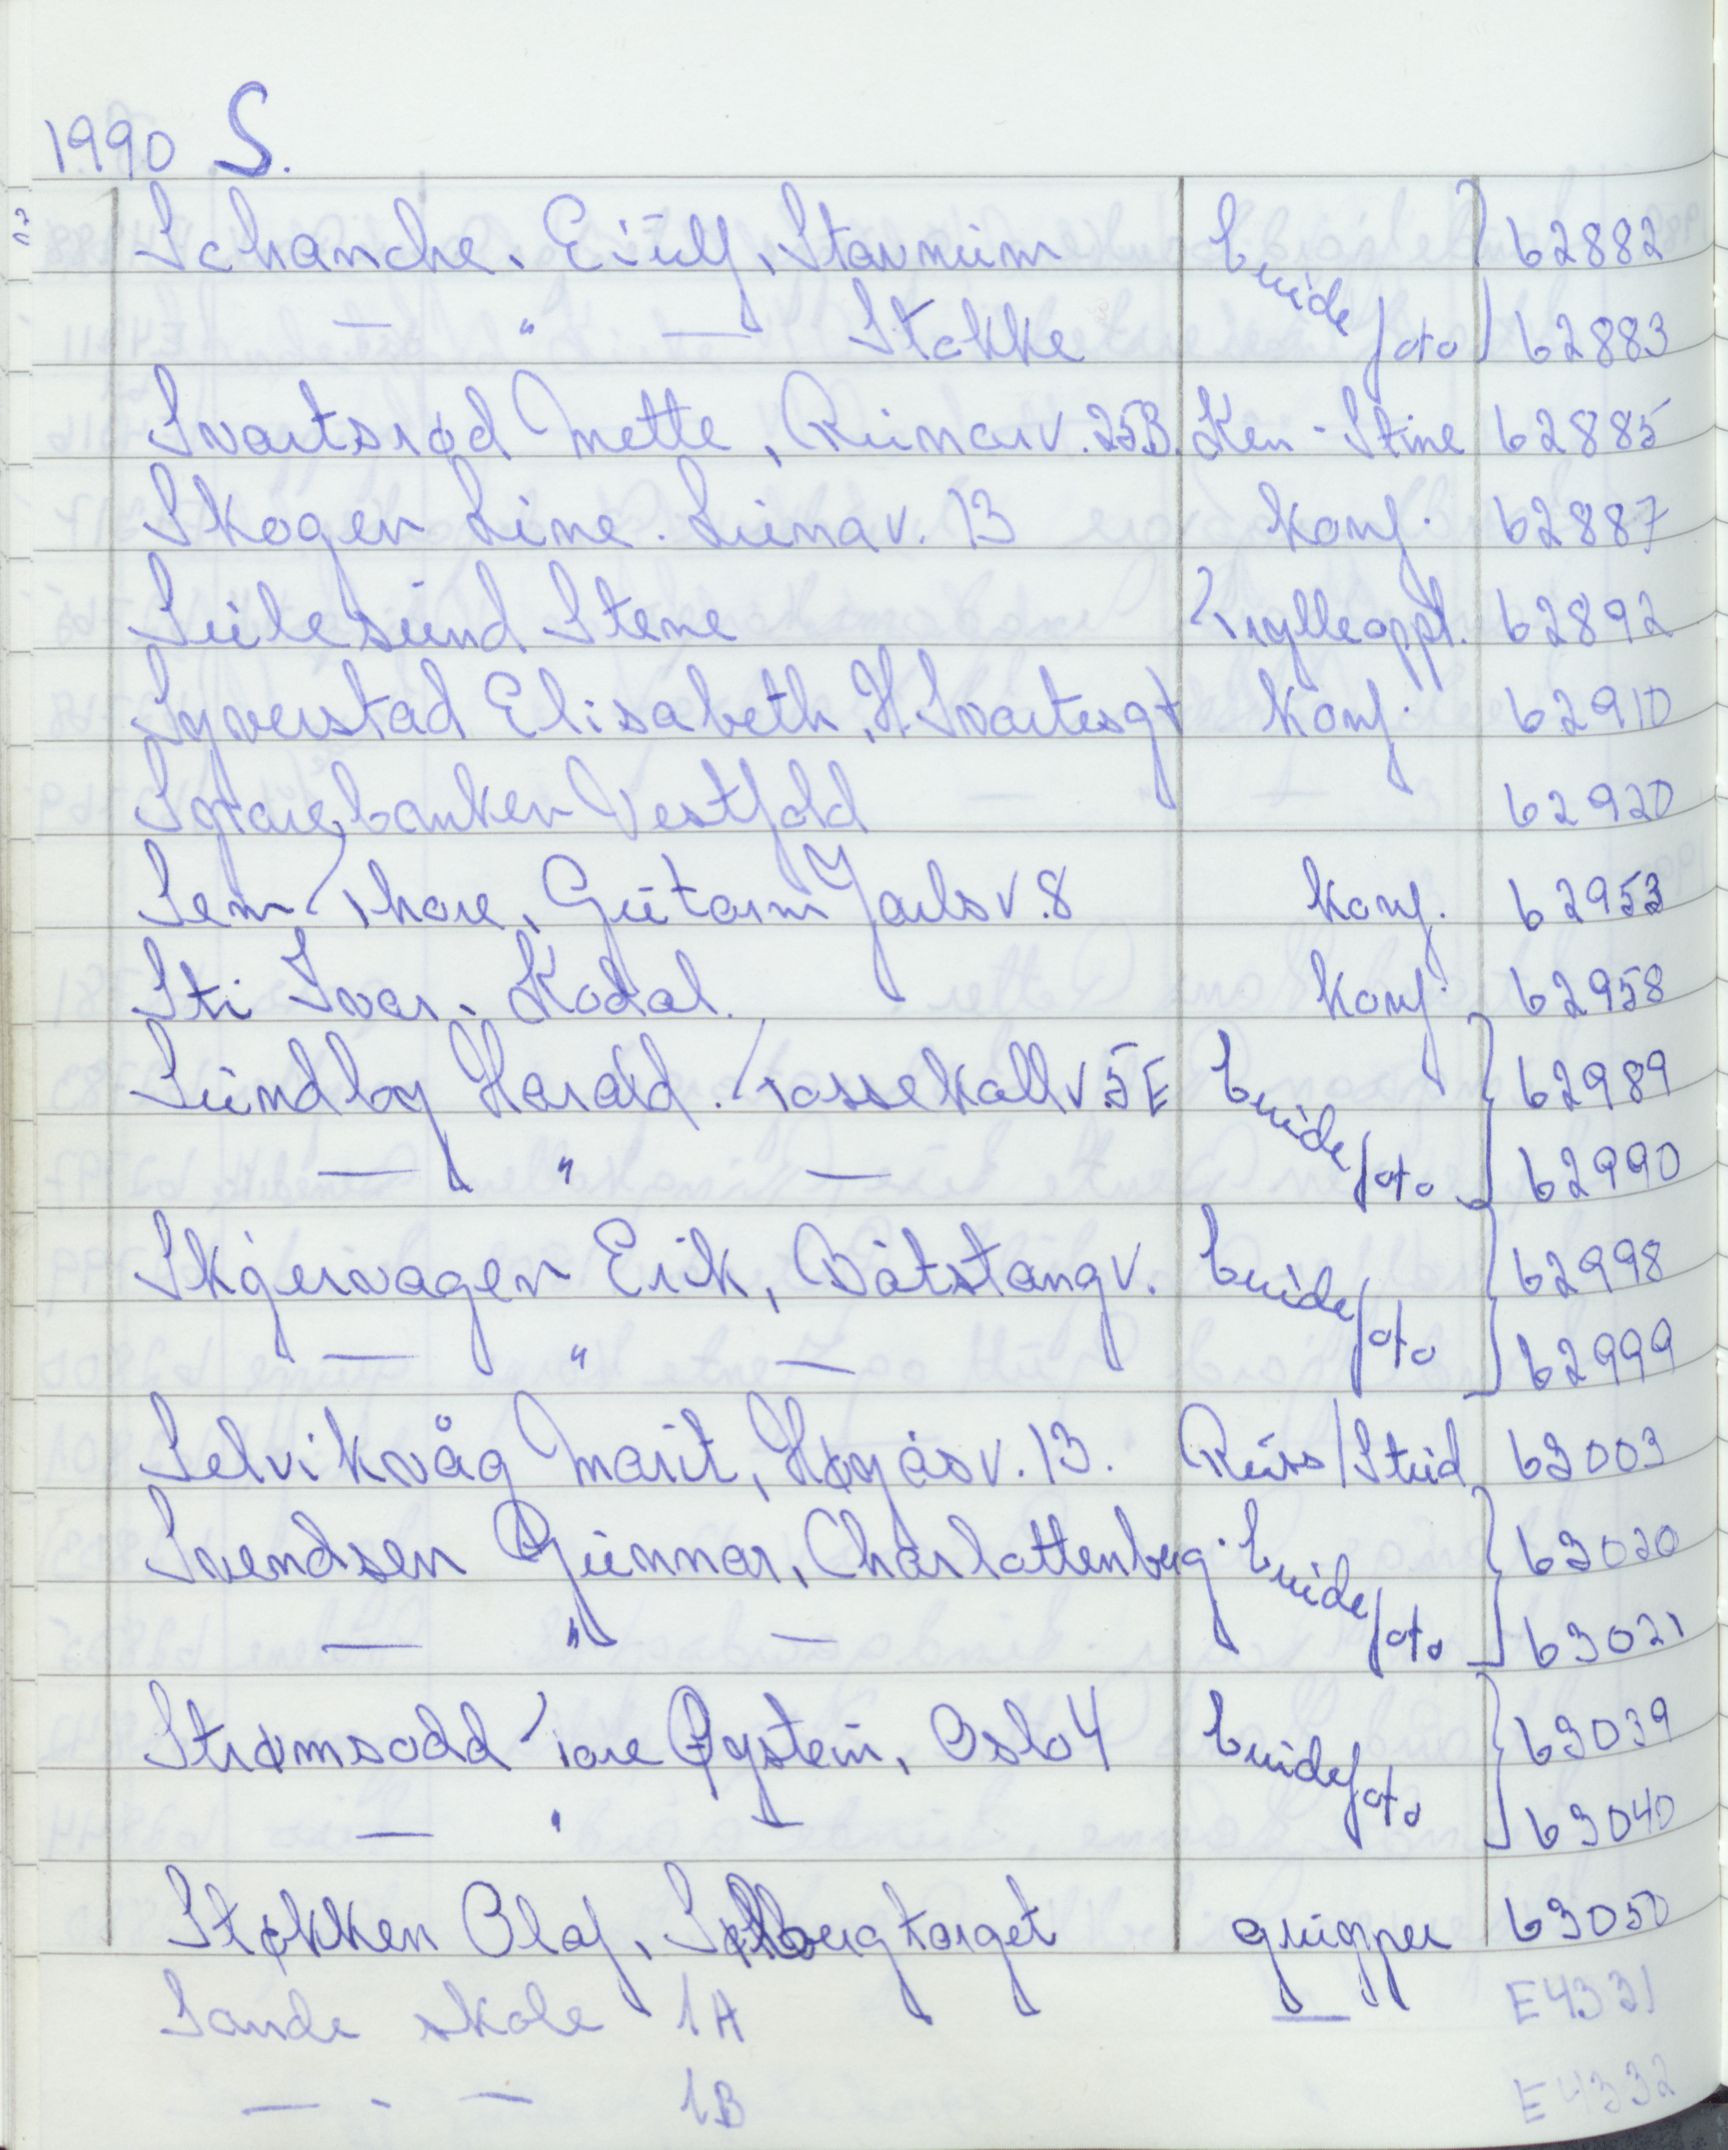 1990 S.
Schanche, Eiulf, Stavnum brude 62882
— " — Stokke foto 62883
Svartsrød Mette, Runarv. 25B. Ken-Stine 62885
Skogen Line. Lunav. 13 konf. 62887
Sulesund Stene Trylleoppt. 62892
Syverstad Elisabeth, H. Svartesgt konf. 62910
Sparebanken Vestfold 62920
Sem Thore, Gutorm Jarlsv. 8 konf. 62953
Sti Ivar, Kodal. konf. 62958
Sundby Harald. Tassekallv. 5E brude 62989
— " — foto 62990
Skjervagen Erik, Båtstangv. brude 62998
— " — foto 62999
Selvikvåg Marit, Høyåsv. 13. Russ/Stud 63003
Svendsen Gunnar, Charlottenberg. brude 63020
— " — foto 63021
Strømsodd Tore Øystein, Oslo 4 brudefoto 63039
— " — 63040
Støkken Olaf, Solbergtorget grupper 63050
Sande skole 1A — E4331
— " — 1B E4332